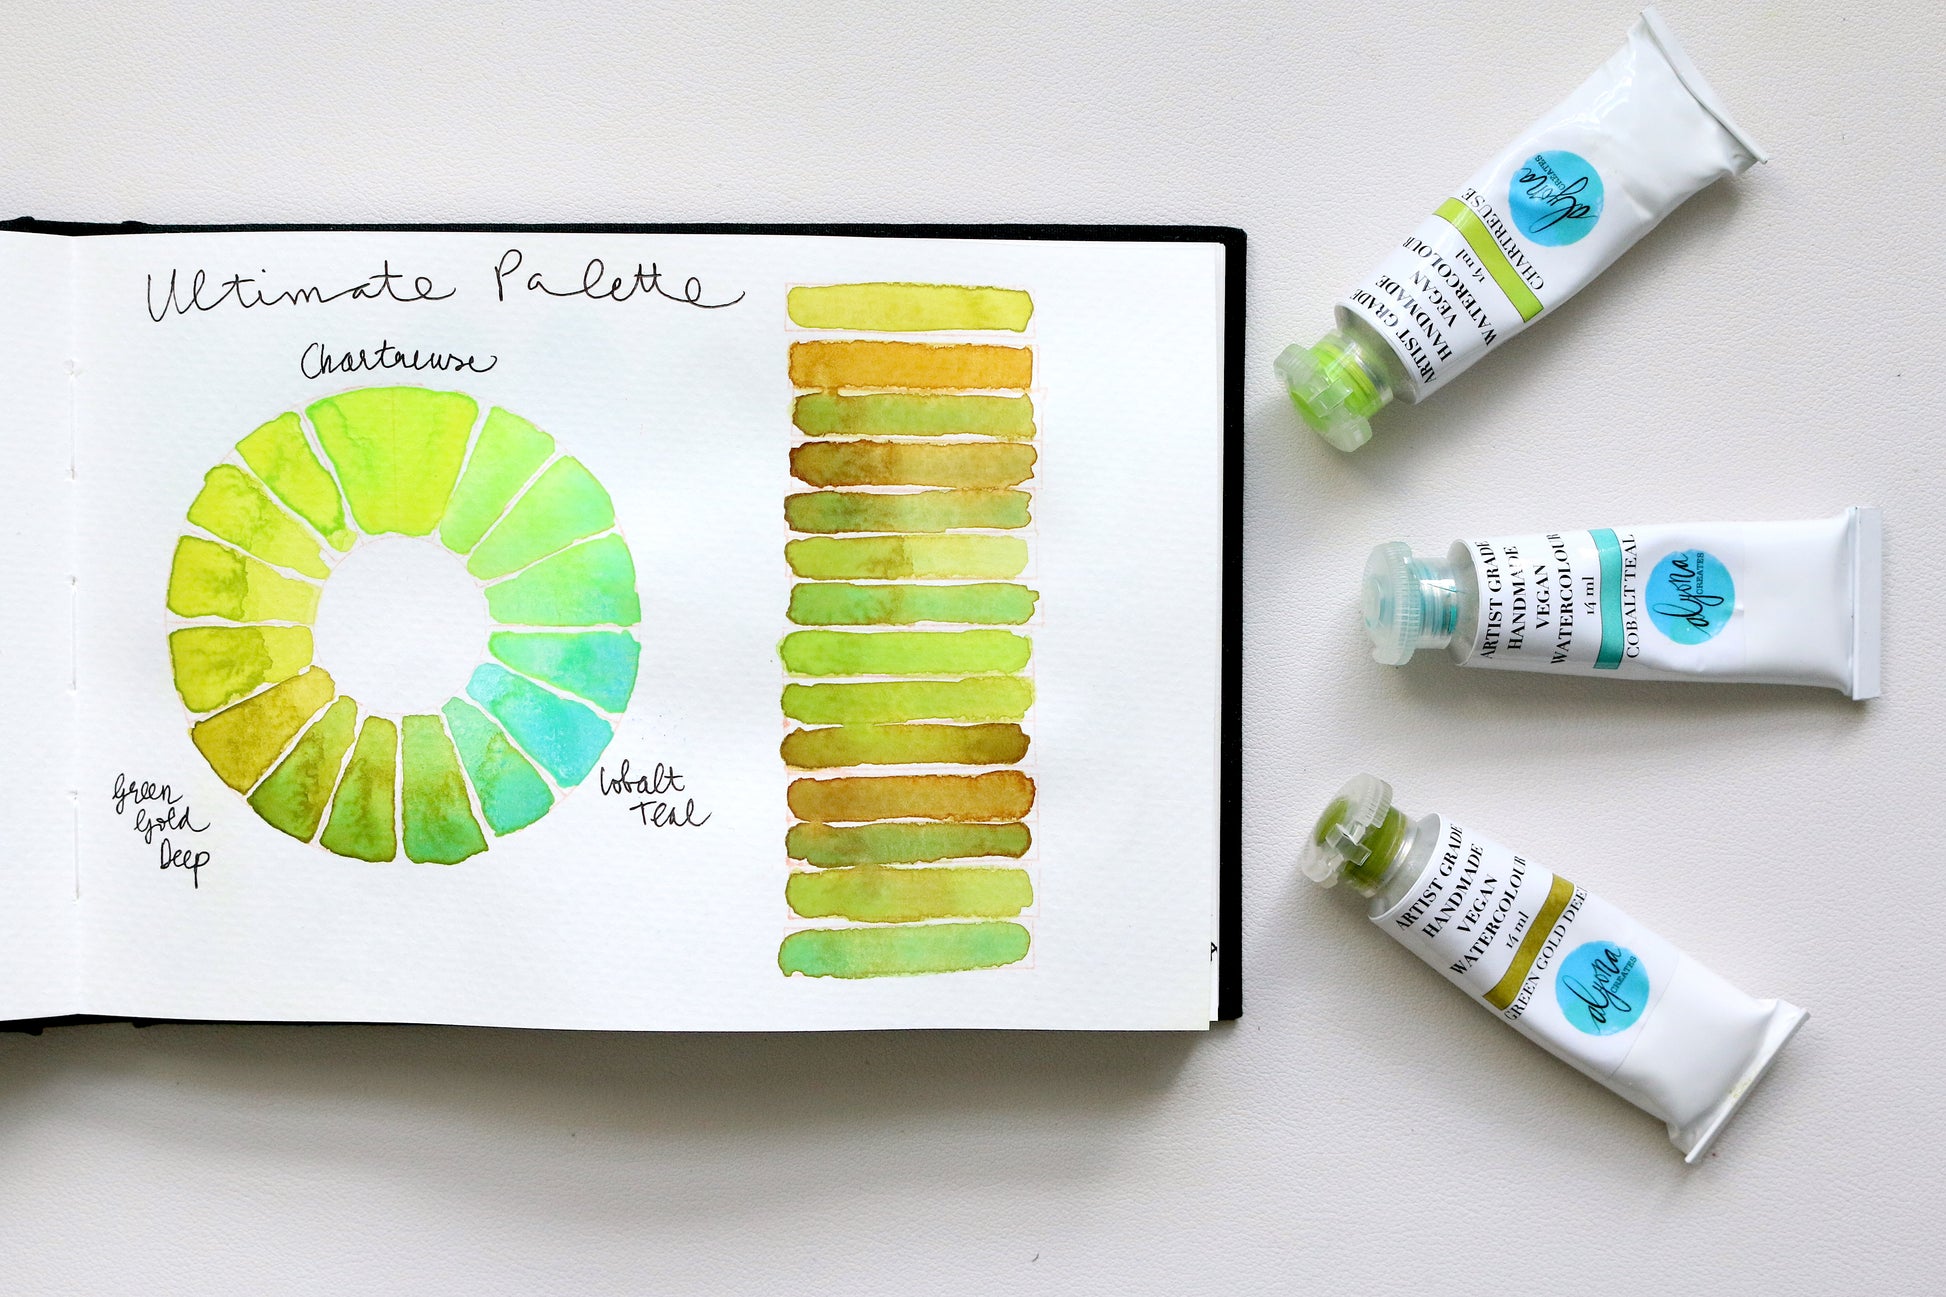 Ultimate Palette
Chartreuse
Green
Gold
Deep
Cobalt
Teal
ARTIST GRADE
HANDMADE
VEGAN
WATERCOLOUR
14 ml
CHARTREUSE
alyona
CREATES
ARTIST GRADE
HANDMADE
VEGAN
WATERCOLOUR
14 ml
COBALT TEAL
alyona
CREATES
ARTIST GRADE
HANDMADE
VEGAN
WATERCOLOUR
14 ml
GREEN GOLD DEEP
alyona
CREATES